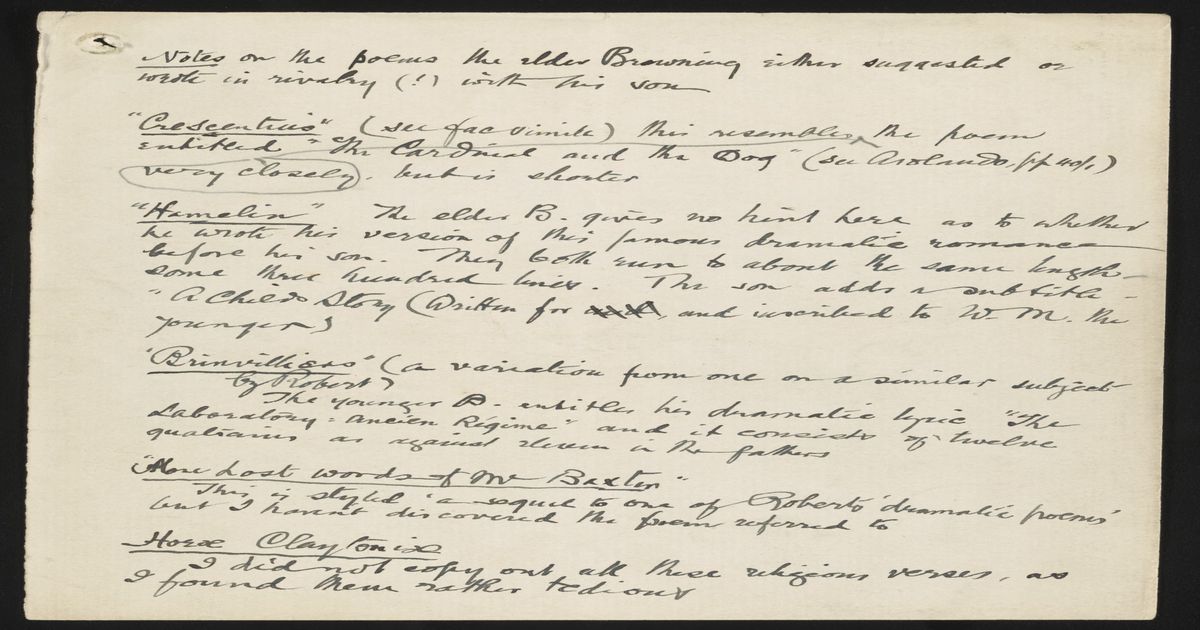 Notes on the poems the elder Browning either suggested or
wrote in rivalry (!) with his son
"Crescentius" (see facsimile) this resembles the poem
entitled "The Cardinal and the Dog" (see Asolando, pp 40/1)
very closely, but is shorter
"Hamelin" The elder B. gives no hint here as to whether
he wrote his version of this famous dramatic romance
before his son. They both run to about the same length -
some three hundred lines. The son adds a subtitle -
"A Child's Story (Written for, and inscribed to W. M. the
younger)
"Brinvilliers" (a variation from one on a similar subject
by Robert)
The younger B. entitles his dramatic lyric "The
Laboratory: Ancien Régime" and it consists of twelve
quatrains as against eleven in the fathers
"More Last words of Mr Baxter"
This is styled 'a sequel to one of Roberts' dramatic poems'
but I haven't discovered the poem referred to
Horæ Claytonix
I did not copy out all these religious verses, as
I found them rather tedious